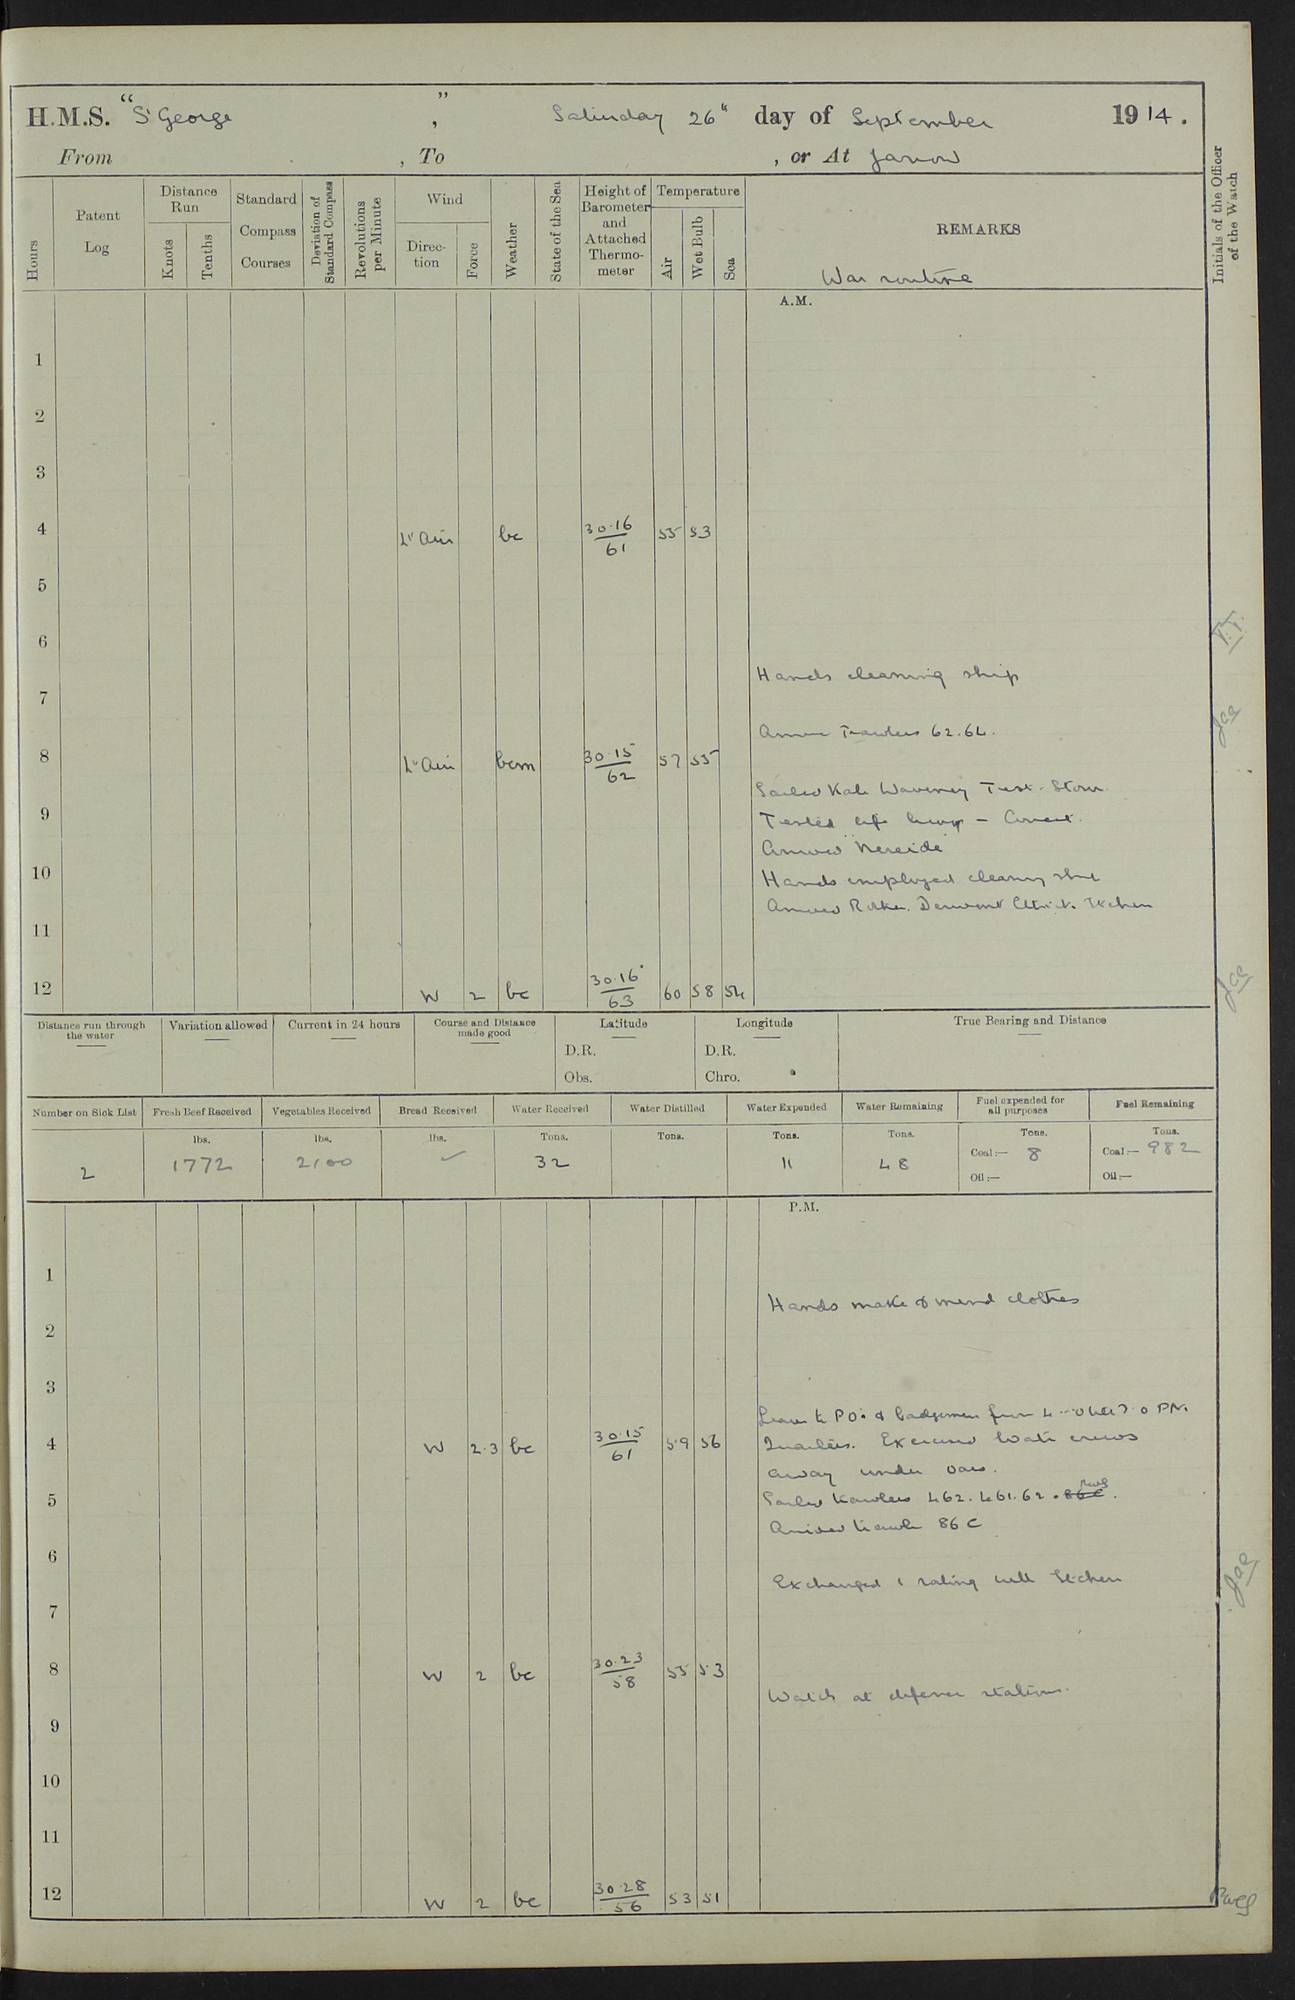 H.M.S. "St George", Saturday 26th day of September 1914.
From , To , or At Jarrow
Hours
Patent Log
Distance Run
Knots
Tenths
Standard Compass Courses
Deviation of Standard Compass
Revolutions per Minute
Wind
Direction
Force
Weather
State of the Sea
Height of Barometer and Attached Thermometer
Temperature
Air
Wet Bulb
Sea
REMARKS
War routine
Initials of the Officer of the Watch
A.M.
1
2
3
4 Lt Air bc 30.16/61 55 53
5
6
T.T.
Hands cleaning ship
7
Trawlers 62. 64.
8 Lt Air bcm 30.15/62 57 55
Sailed Kale Waveney Test. Stour.
9
Tested life buoys - Correct.
Arrived "Nereide"
10
Hands employed cleaning ship
Arrived Rother. Derwent Ettrick. Itchen
11
12 W 2 bc 30.16/63 60 58 54
Distance run through the water
Variation allowed
Current in 24 hours
Course and Distance made good
Latitude
D.R.
Obs.
Longitude
D.R.
Chro.
True Bearing and Distance
Number on Sick List 2
Fresh Beef Received lbs. 1772
Vegetables Received lbs. 2100
Bread Received lbs. ✓
Water Received Tons. 32
Water Distilled Tons.
Water Expended Tons. 11
Water Remaining Tons. 48
Fuel expended for all purposes Tons. Coal:— 8 Oil:—
Fuel Remaining Tons. Coal:— 982 Oil:—
P.M.
1
Hands make & mend clothes
2
3
Leave to P.O.s & badgemen from 4 7.0 PM.
4 W 2.3 bc 30.15/61 59 56
Quarters. Exercised boats crews
away under oars.
5
Sailed trawlers 462. 461. 62. 86C.
Arrived trawler 86C
6
Exchanged 1 rating with Itchen
7
8 W 2 bc 30.23/58 55 53
Watch at defence stations.
9
10
11
12 W 2 bc 30.28/56 53 51